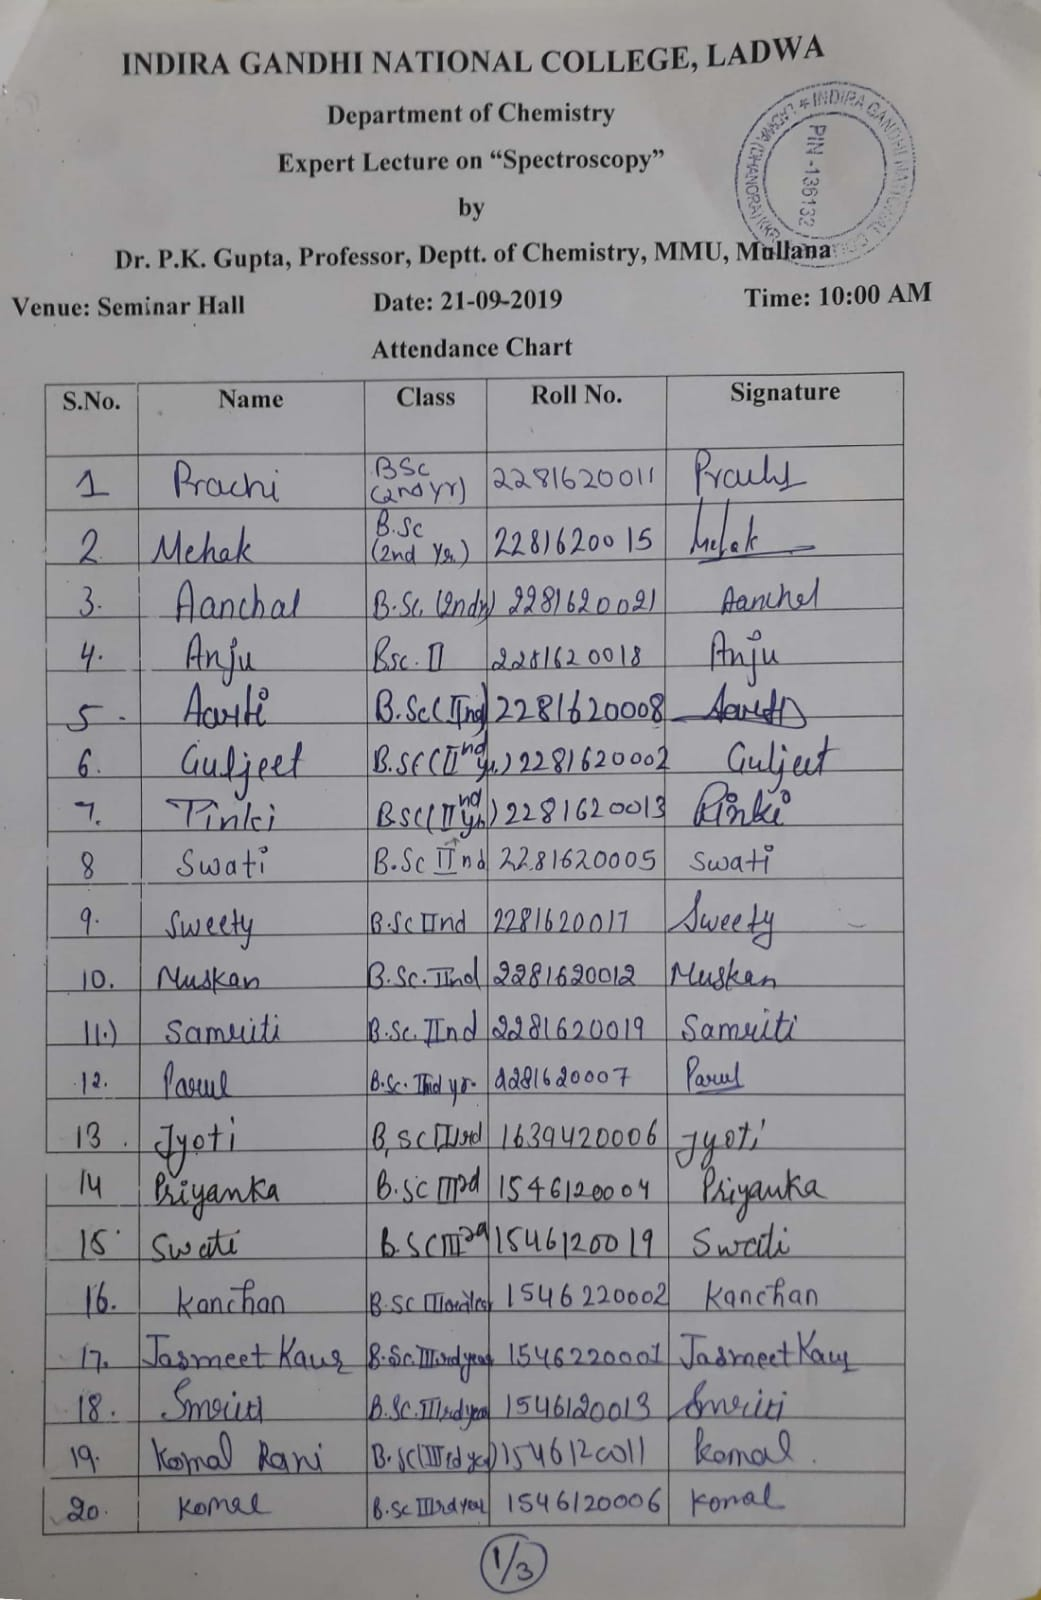 INDIRA GANDHI NATIONAL COLLEGE, LADWA
Department of Chemistry
Expert Lecture on “Spectroscopy”
by
Dr. P.K. Gupta, Professor, Deptt. of Chemistry, MMU, Mullana
INDIRA GANDHI NATIONAL COLLEGE LADWA (DHANORA) KKR
PIN -136132
Venue: Seminar Hall Date: 21-09-2019 Time: 10:00 AM
Attendance Chart
S.No. Name Class Roll No. Signature
1 Prachi BSc (2nd yr) 2281620011 Prachi
2. Mehak B.Sc (2nd Yr.) 2281620015 Mehak
3. Aanchal B.Sc. (2ndyr) 2281620021 Aanchal
4. Anju Bsc. II 2281620018 Anju
5. Aarti B.Sc(IInd) 2281620008 Aarti
6. Guljeet B.SC(IInd yr.) 2281620002 Guljeet
7. Pinki BSC(IInd yr) 2281620013 Pinki
8 Swati B.Sc IInd 2281620005 Swati
9. Sweety B.Sc IInd 2281620017 Sweety
10. Muskan B.Sc. IInd 2281620012 Muskan
11.) Samriti B.Sc. IInd 2281620019 Samriti
12. Parul B.Sc. IInd yr. 2281620007 Parul
13. Jyoti B.SC IIIrd 1639420006 Jyoti
14 Priyanka B.SC IIIrd 1546120004 Priyanka
15 Swati B.SC IIIrd 1546120019 Swati
16. Kanchan B.SC IIIrd Year 1546220002 Kanchan
17. Jasmeet Kaur B.Sc. IIIrd year 1546220001 Jasmeet Kaur
18. Smriti B.Sc. IIIrd year 1546120013 Smriti
19. Komal Rani B.SC(IIIrd year) 1546120011 Komal
20. Komal B.Sc IIIrd year 1546120006 Komal
1/3